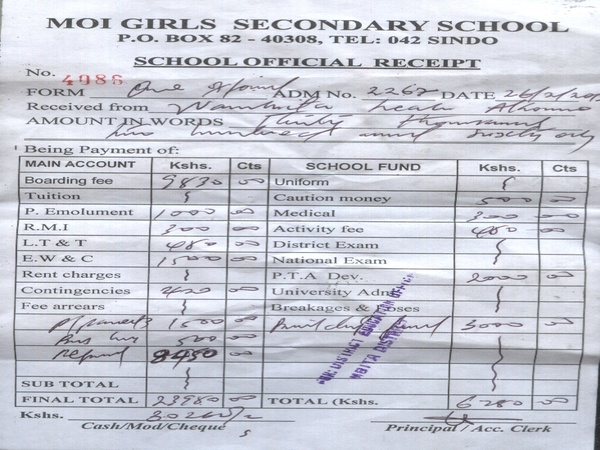 MOI GIRLS SECONDARY SCHOOL
P.O. BOX 82 - 40308, TEL: 042 SINDO
SCHOOL OFFICIAL RECEIPT
No. 4088
FORM One ADM No. 2262 DATE 26/2/
Received from
AMOUNT IN WORDS Thirty thousand
two hundred and sixty only
Being Payment of:
MAIN ACCOUNT Kshs. Cts SCHOOL FUND Kshs. Cts
Boarding fee 9830 00 Uniform
Tuition Caution money 500 00
P. Emolument 1000 00 Medical 300 00
R.M.I 300 00 Activity fee 480 00
L.T & T 480 00 District Exam
E.W & C 1500 00 National Exam
Rent charges P.T.A Dev. 2000 00
Contingencies 420 00 University Adm
Fee arrears Breakages & loses
1500 00 Building fund 3000 00
500 00
refund 8450 00
SUB TOTAL
FINAL TOTAL 23980 00 TOTAL (Kshs. 6280 00
Kshs. 30260/=
Cash/Mod/Cheque Principal / Acc. Clerk
DISTRICT EDUCATION OFFICER
MBITA DISTRICT